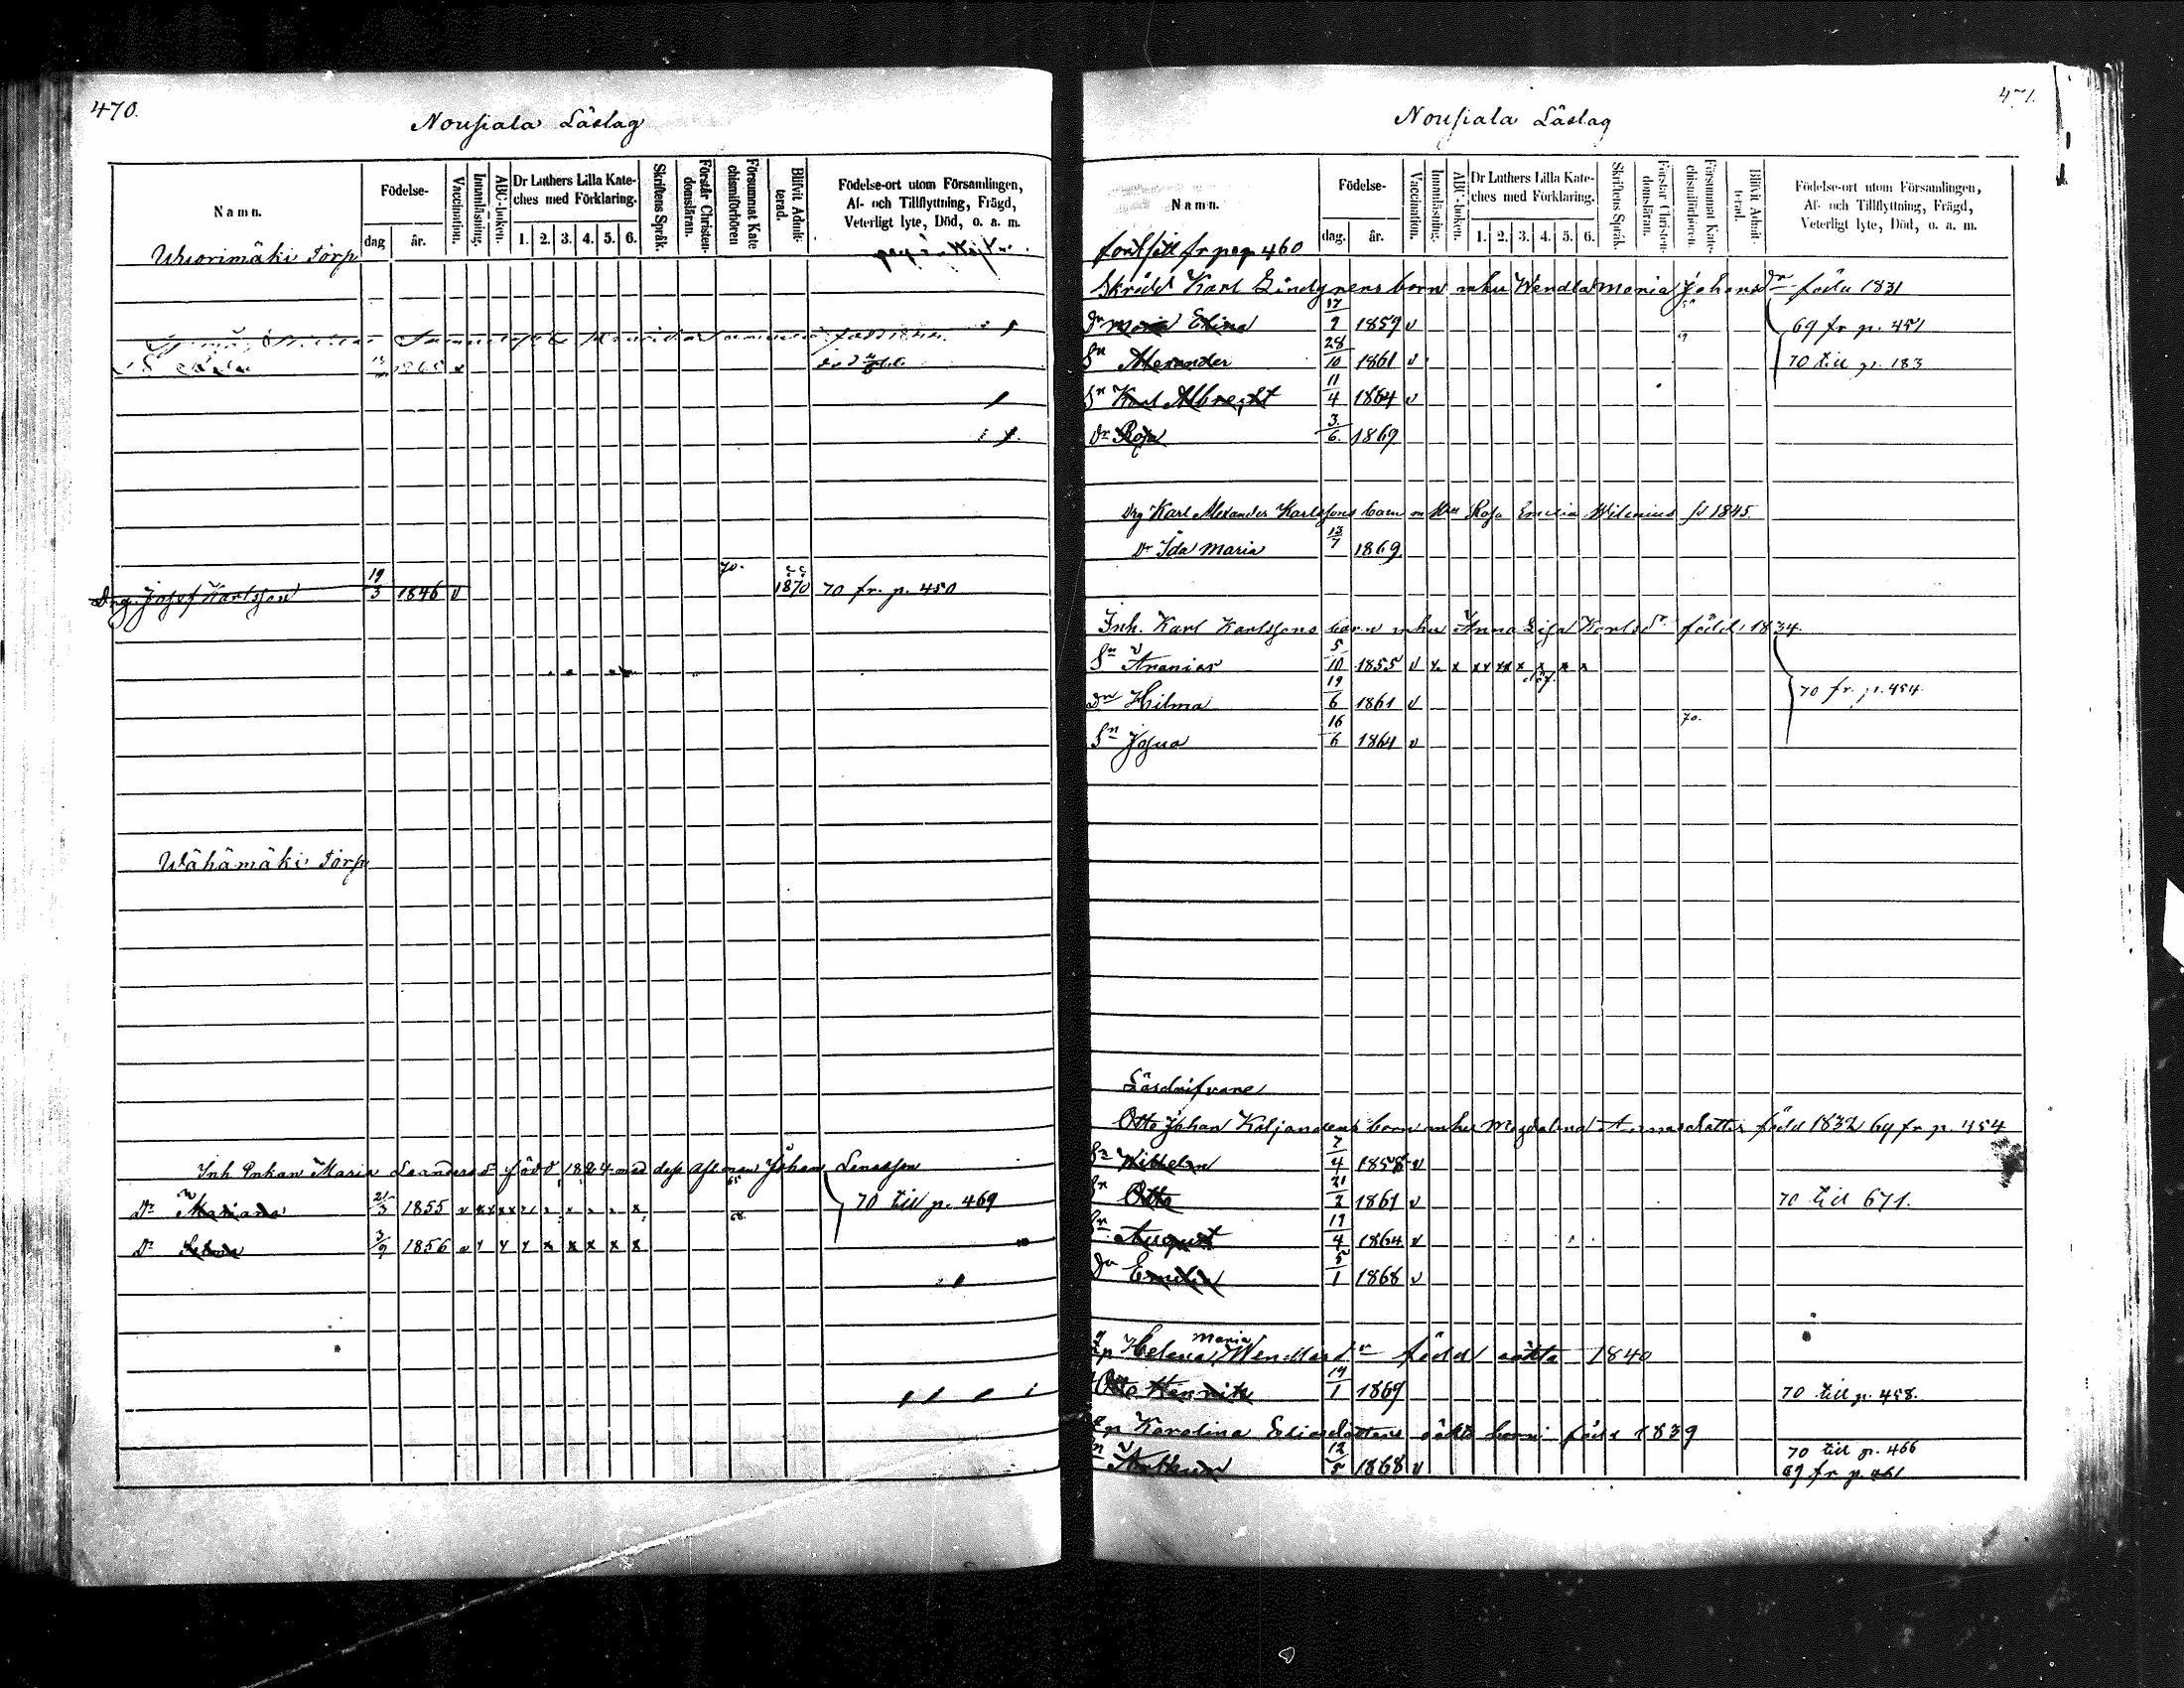 470.
Nousiala Läslag
Namn.
Födelse-
dag
år.
Vaccination.
Innanläsning.
ABC-boken.
Dr Luthers Lilla Kate-
ches med Förklaring.
1. 2. 3. 4. 5. 6.
Skriftens Språk.
Förstår Christen-
domsläran.
Försummat Kate
chismiförhören
Blifvit Admit-
terad.
Födelse-ort utom Församlingen,
Af- och Tillflyttning, Frägd,
Veterligt lyte, Död, o. a. m.
Wuorimäki Torp
Drg. Josef Karlsson 19/3 1846 v 70. 1870 70 fr. p. 450
Wähämäki Torp
Inh Enkan Maria Leandersdr född 1824 med dess afl man Johan Lenasson
Dr Mariana 21/3 1855 v 70 till p. 469
Dr 3/9 1856 v
471.
Nousiala Läslag
Namn.
Födelse-
dag. år.
Vaccination.
Innanläsning.
ABC-boken.
Dr Luthers Lilla Kate-
ches med Förklaring.
1. 2. 3. 4. 5. 6.
Skriftens Språk.
Förstår Christen-
domsläran.
Försummat Kate-
chismiförhören.
Blifvit Admit-
terad.
Födelse-ort utom Församlingen,
Af- och Tillflyttning, Frägd,
Veterligt lyte, Död, o. a. m.
fortsätt fr pag. 460
Skrädd Karl Lindgrens barn mhu Wendla Maria Johansdr föda 1831
Dr Maria Elina 17/9 1859 v 69 fr p. 451
Sn Alexander 28/10 1861 v 70 till p. 183
Sn Karl Albrecht 11/4 1864 v
Dr Rosa 3/6. 1869
Drg Karl Alexander Karlssons barn m Hu Rosa Emilia Wilenius fd 1845.
Dr Ida Maria 13/7 1869
Inh. Karl Karlssons barn mhu Anna Lisa Karlsdr född 1834.
Sn Ananias 5/10 1855 v x x xx xx x x x x
Dr Hilma 19/6 1861 v 70 fr. p. 454.
Sn Josua 16/6 1864 v 70.
Lösdrifvare
Otto Johan Koljanders barn mhu Magdalena Annasdotter född 1832 69 fr p. 454
Sn Wilhelm 7/4 1858 v
Sn Otto 21/2 1861 v 70 till 671.
Sn August 19/4 1864 v
Dr Emilia 5/1 1868 v
Helena Maria Wendlasdr född oäkta 1840
Otto Henrik 14/1 1869 70 till p. 458.
Karolina Eliasdotters oäkta barn född 1839
70 till p. 466
Arthur 12/5 1868 v 69 fr p. 461